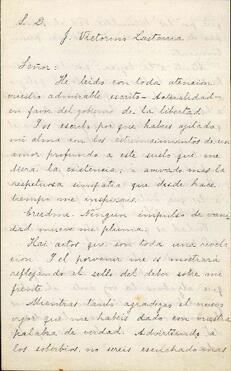 S. D.
J. Victorino Lastarria
Señor:
He leido con toda atencion
vuestro admirable escrito
en favor del gobierno de la libertad.
Os escribo por que habeis agitado
mi alma en los estremecimientos de un
amor profundo a este suelo que me
diera la existencia; i amando mas la
respetuosa simpatia que desde hace
tiempo me inspirais.
Creedme. Ningun impulso de vani
dad mueve mi pluma.
Hai actos que son toda una revela
cion. I el porvenir me os mostrará
reflejando el sello del deber sobre mi
frente.
Mientras tanto agradezco el nuevo
vigor que me habeis dado con vuestra
palabra de verdad. Advirtiendo a
los soberbios, no sereis escuchado mas